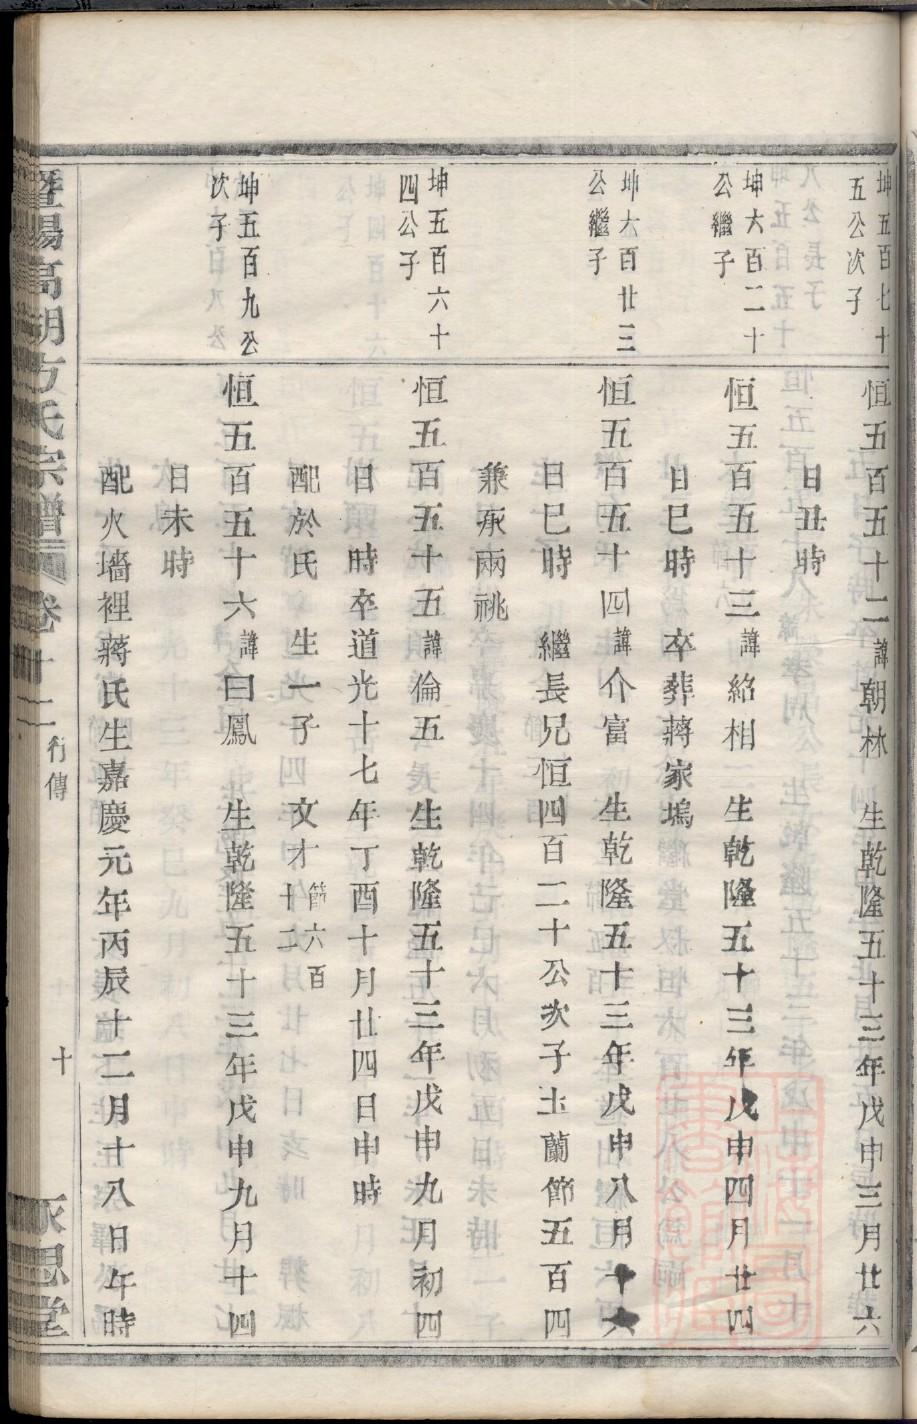 坤五百七十
五公次子
恒五百五十二諱朝林 生乾隆五十三年戊申三月廿六
日丑時
坤六百二十
公繼子
恒五百五十三諱紹相 生乾隆五十三年戊申四月廿四
日巳時 卒葬蔣家塢
坤六百廿三
公繼子
恒五百五十四諱介富 生乾隆五十三年戊申八月十六
日巳時 繼長兄恒四百二十公次子玉蘭節五百四
兼承兩祧
坤五百六十
四公子
恒五百五十五諱倫五 生乾隆五十三年戊申九月初四
日 時卒道光十七年丁酉十月廿四日申時
配於氏 生一子 文才節六百十二
坤五百九公
次子
恒五百五十六諱曰鳳 生乾隆五十三年戊申九月十四
日未時
配火墻裡蔣氏生嘉慶元年丙辰十二月十八日午時
暨陽高湖方氏宗譜 卷十二 行傳 十 永思堂